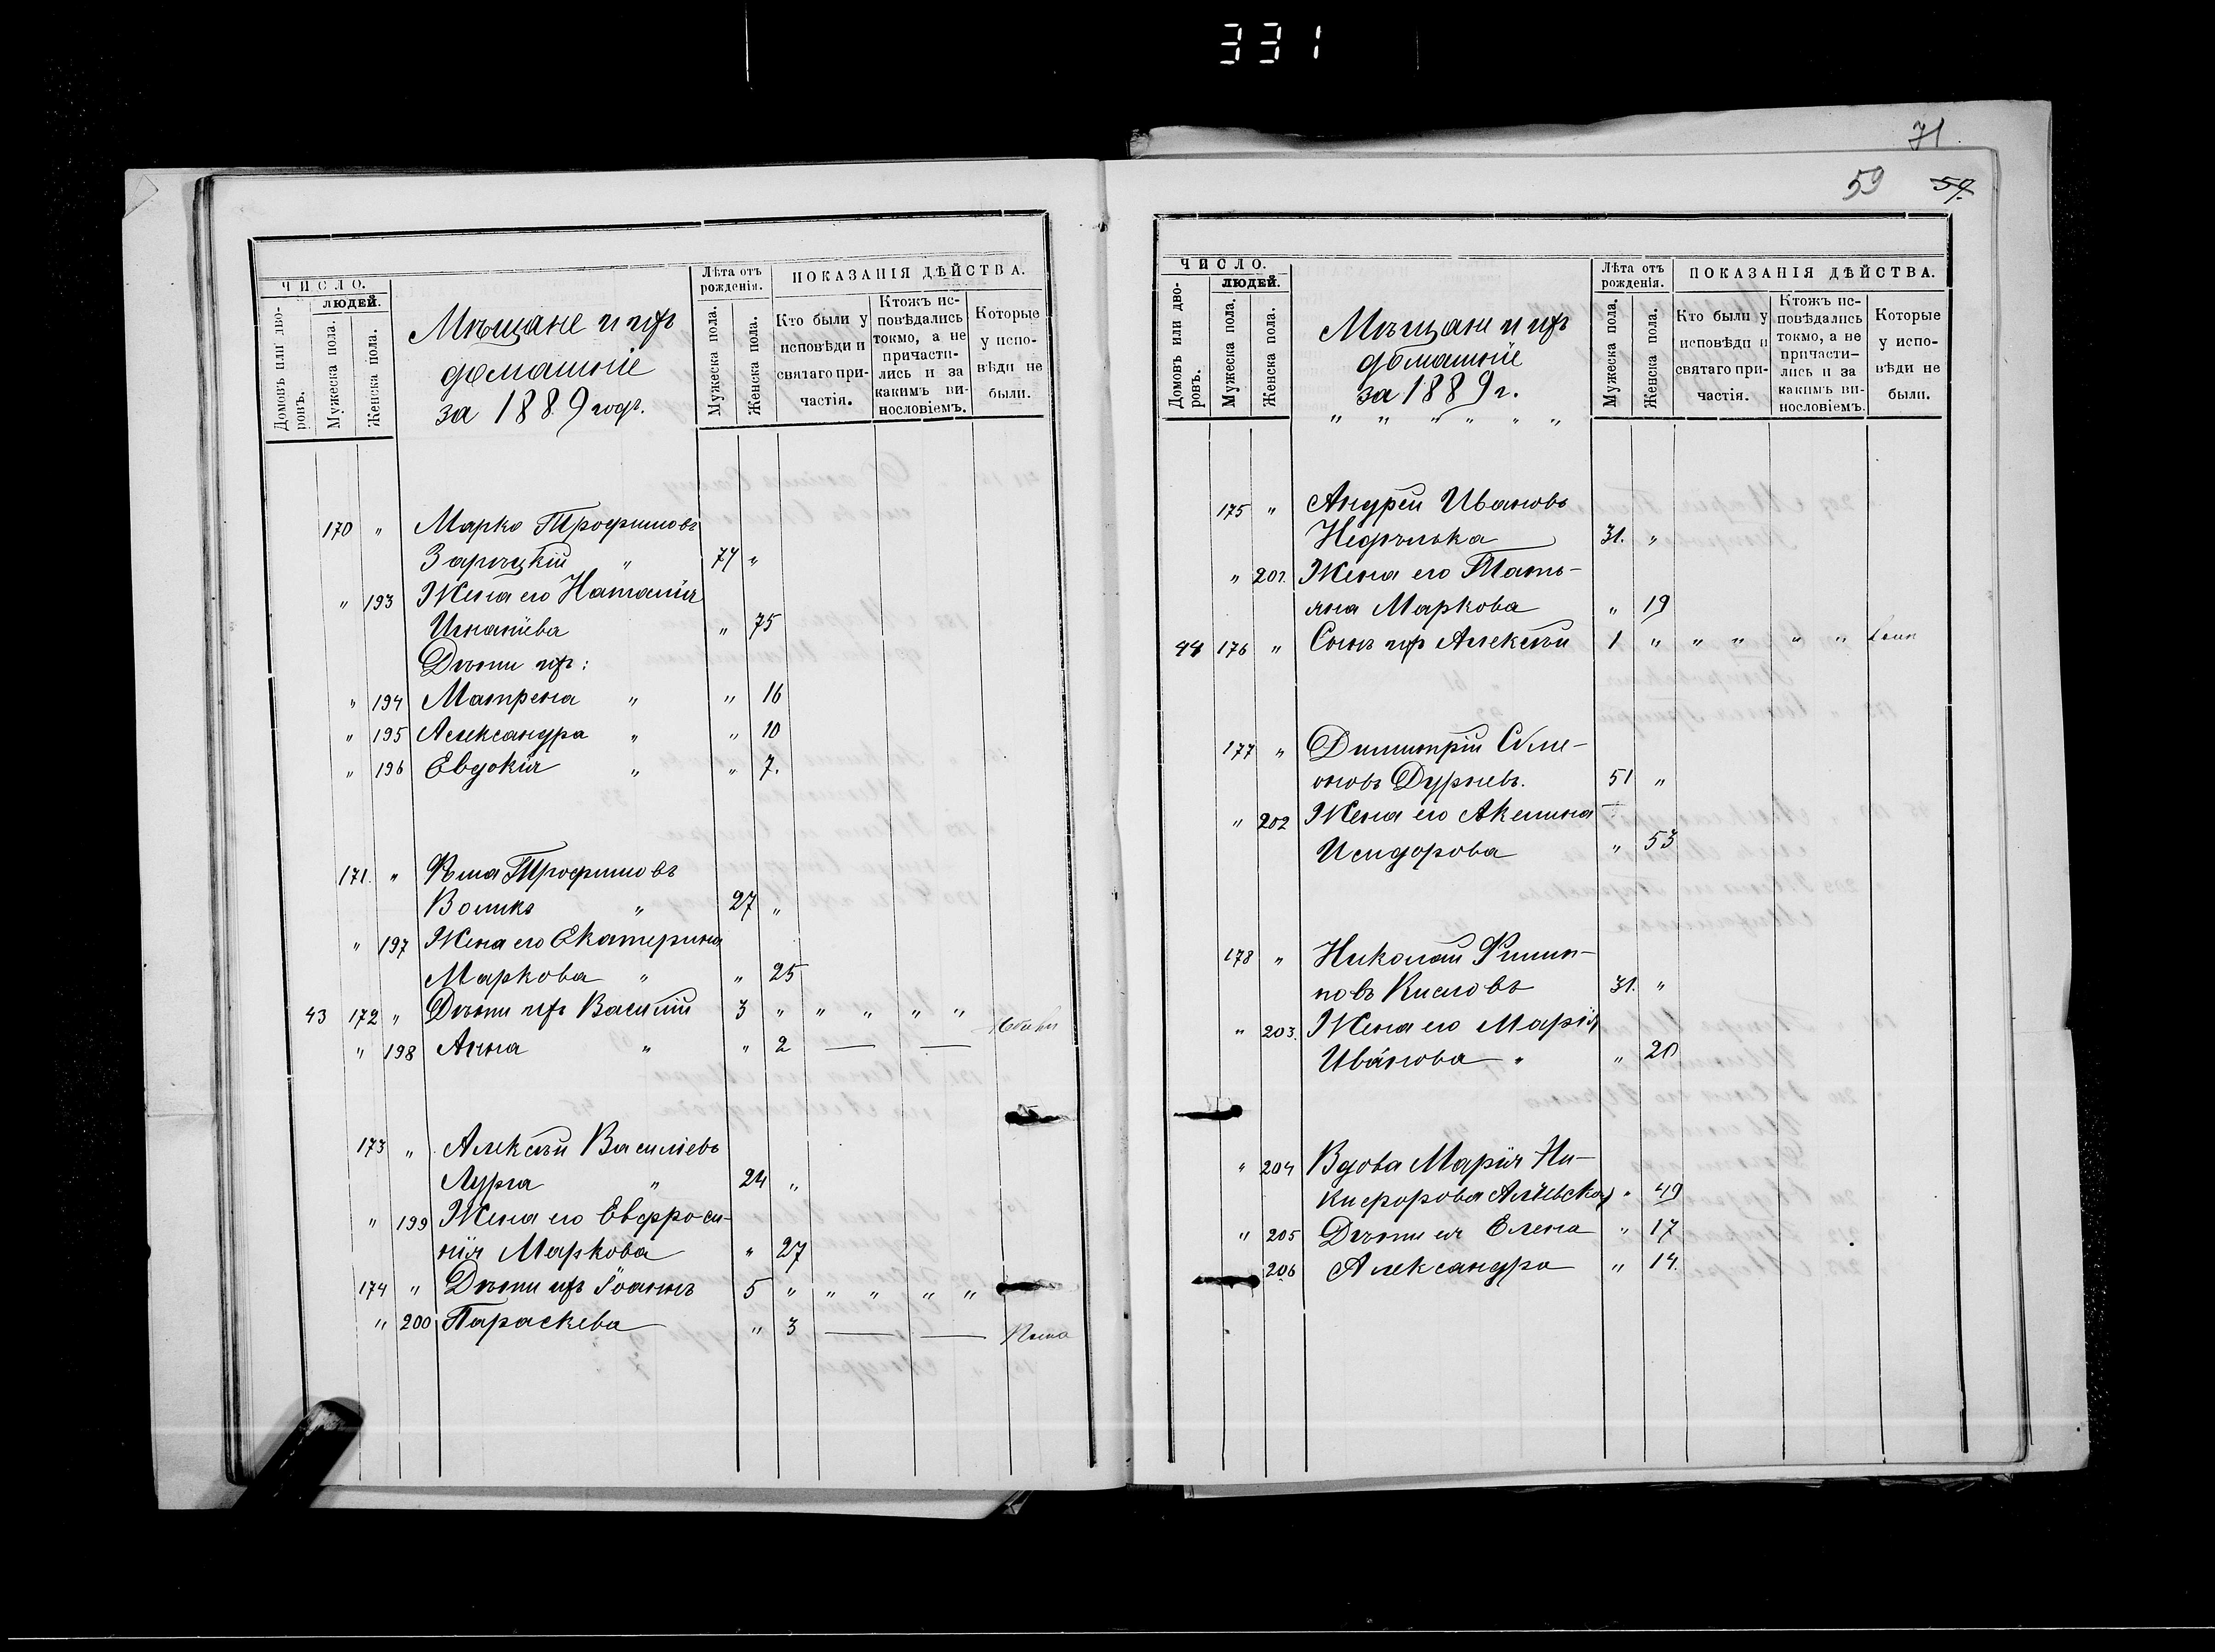 331
71.
ЧИСЛО.
людей.
Домовъ или дворовъ.
Мужеска пола.
Женска пола.
Мѣщане и ихъ
домашніе
за 1889 годъ.
Лѣта отъ
рожденія.
Мужеска пола.
Женска пола.
ПОКАЗАНІЯ ДѢЙСТВА.
Кто были у
исповѣди и
святаго при-
частія.
Ктожъ ис-
повѣдались
токмо, а не
причасти-
лись и за
какимъ ви-
нословіемъ.
Которые
у испо-
вѣди не
были.
170 " Марко Трофимовъ
Зарѣцкій " 74 "
" 193 Жена его Наталія
Игнатіева " 75
Дѣти ихъ:
" 194 Матрена " " 16
" 195 Александра " " 10
" 196 Евдокія " " 7.
171. " Ѳома Трофимовъ
Волико " 27 "
" 197 Жена его Екатерина
Маркова " " 25
43 172 " Дѣти ихъ Василій 3 " " " " "
" 198 Анна " " 2 — —
173 " Алексѣй Василіевъ
Лурга " 24 "
" 199 Жена его Евфроси-
нія Маркова " 27
174 " Дѣти ихъ Іоаннъ 5 " " " " "
" 200 Параскева " 3 — —
59 59.
ЧИСЛО.
людей.
Домовъ или дво-
ровъ.
Мужеска пола.
Женска пола.
Мѣщане и ихъ
домашніе
за 1889 г.
" " " " " "
Лѣта отъ
рожденія.
Мужеска пола.
Женска пола.
ПОКАЗАНІЯ ДѢЙСТВА.
Кто были у
исповѣди и
святаго при-
частія.
Ктожъ ис-
повѣдались
токмо, а не
причасти-
лись и за
какимъ ви-
нословіемъ.
Которые
у испо-
вѣди не
были.
175 " Андрей Ивановъ
Недѣлька 31. "
" 201. Жена его Тать-
яна Маркова " 19
44 176 " Сынъ ихъ Алексѣй 1 " " " " "
177 " Димитрій Семе-
оновъ Дурневъ. 51 "
" 202 Жена его Акелина
Исидорова " 53
178 " Николай Филип-
повъ Кисловъ 31. "
" 203. Жена его Марія
Иванова " " 20
" 204 Вдова Марія Ни-
кифорова " 49
" 205 Дѣти ея Елена " 17
206 Александра " 14.